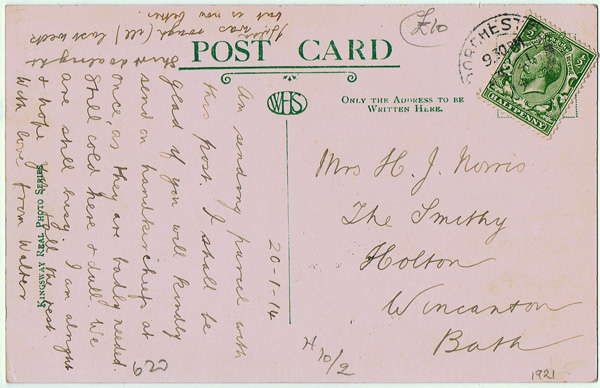 POST CARD
WHS
ONLY THE ADDRESS TO BE
WRITTEN HERE.
KINGSWAY REAL PHOTO SERIES
DORCHEST
9.30
HALFPENNY
£10
20-1-14
Am sending parcel with
this post. I shall be
glad if you will kindly
send on handkerchiefs at
once, as they are badly needed.
Still cold here & dull. We
are still busy. I am alright
& hope you all the rest.
With love from Walter
Shirt do alright
was rough (ill) last week
but is now better.
Mrs H. J. Norris
The Smithy
Holton
Wincanton
Bath
H 10/2
620
1921